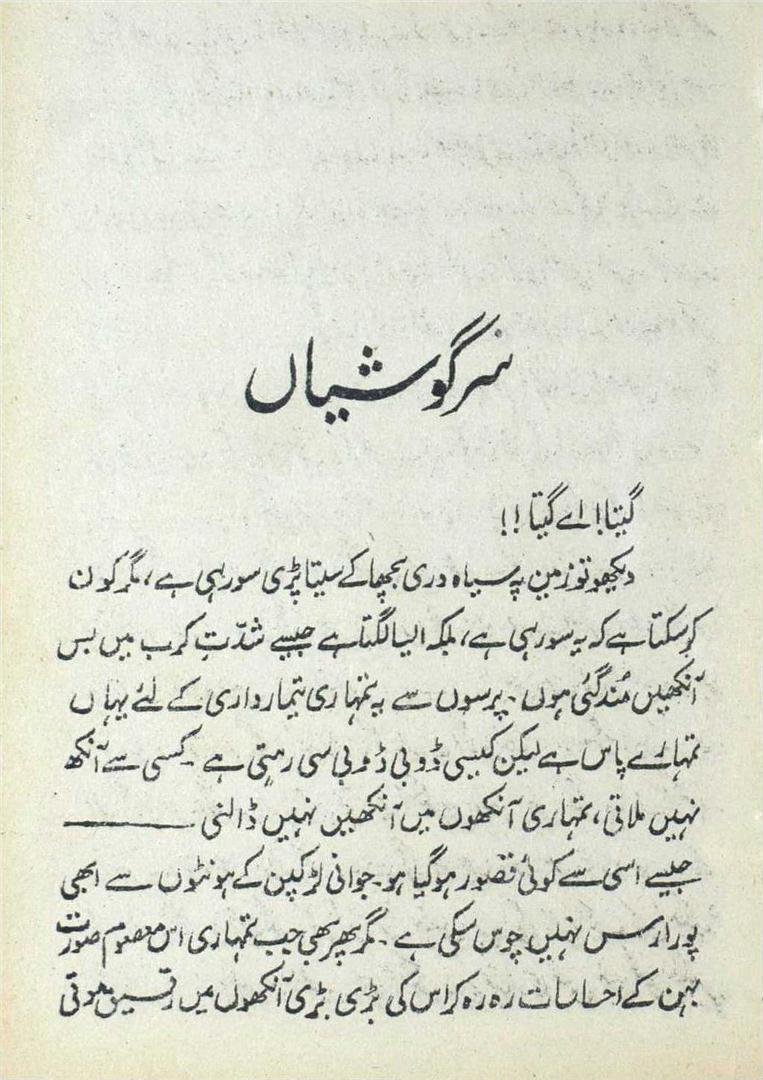 سرگوشیاں
گیتا! اے گیتا !!
دیکھو تو زمین پہ سیاہ دری بچھا کے سیتا پڑی سو رہی ہے، مگر کون
کہہ سکتا ہے کہ یہ سو رہی ہے، بلکہ ایسا لگتا ہے جیسے شدّتِ کرب میں بس
آنکھیں مُند گئی ہوں۔ پرسوں سے یہ تمہاری تیمارداری کے لئے یہاں
تمہارے پاس ہے لیکن کیسی ڈوبی ڈوبی سی رہتی ہے۔ کسی سے آنکھ
نہیں ملاتی، تمہاری آنکھوں میں آنکھیں نہیں ڈالتی ———
جیسے اسی سے کوئی قصور ہو گیا ہو۔ جوانی لڑکپن کے ہونٹوں سے ابھی
پورا رس نہیں چوس سکی ہے۔ مگر پھر بھی جب تمہاری اس معصوم صورت
بہن کے احساسات رہ رہ کر اس کی بڑی بڑی آنکھوں میں ہوتی